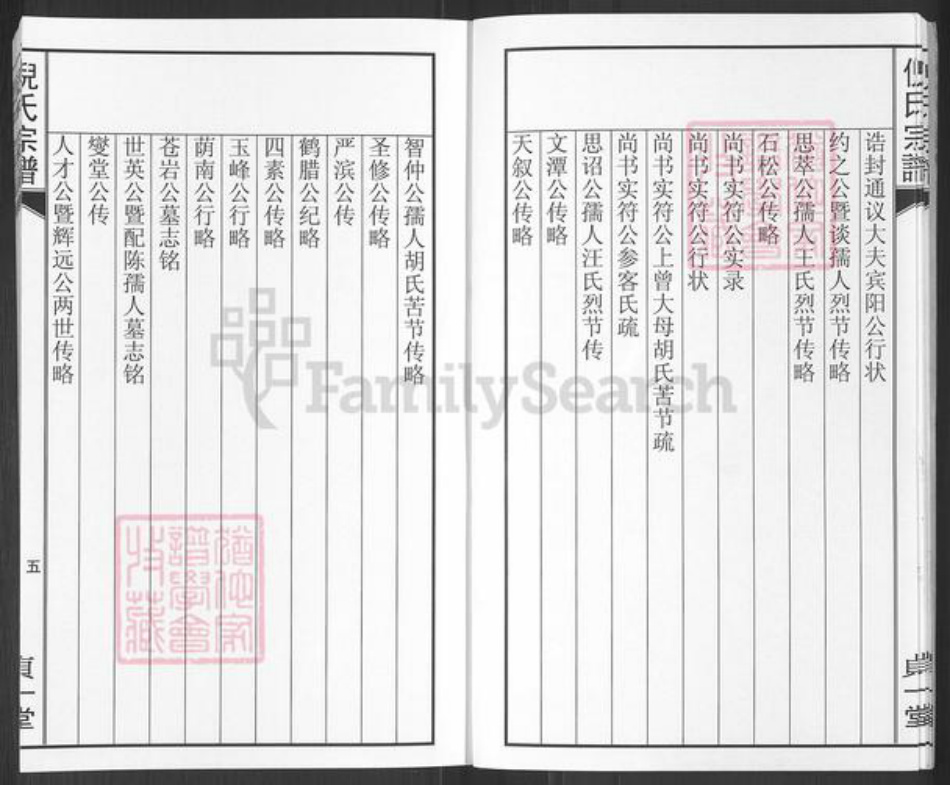 诰封通议大夫宾阳公行状
约之公暨谈孺人烈节传略
思萃公孺人王氏烈节传略
石松公传略
尚书实符公实录
尚书实符公行状
尚书实符公上曾大母胡氏苦节疏
尚书实符公参客氏疏
思诏公孺人汪氏烈节传
文潭公传略
天叙公传略
倪氏宗譜
貞一堂
智仲公孺人胡氏苦节传略
圣修公传略
严滨公传
鹤腊公纪略
四素公传略
玉峰公行略
荫南公行略
苍岩公墓志铭
世英公暨配陈孺人墓志铭
燮堂公传
人才公暨辉远公两世传略
倪氏宗譜
五
貞一堂
猶他家
譜學會
收藏
FamilySearch